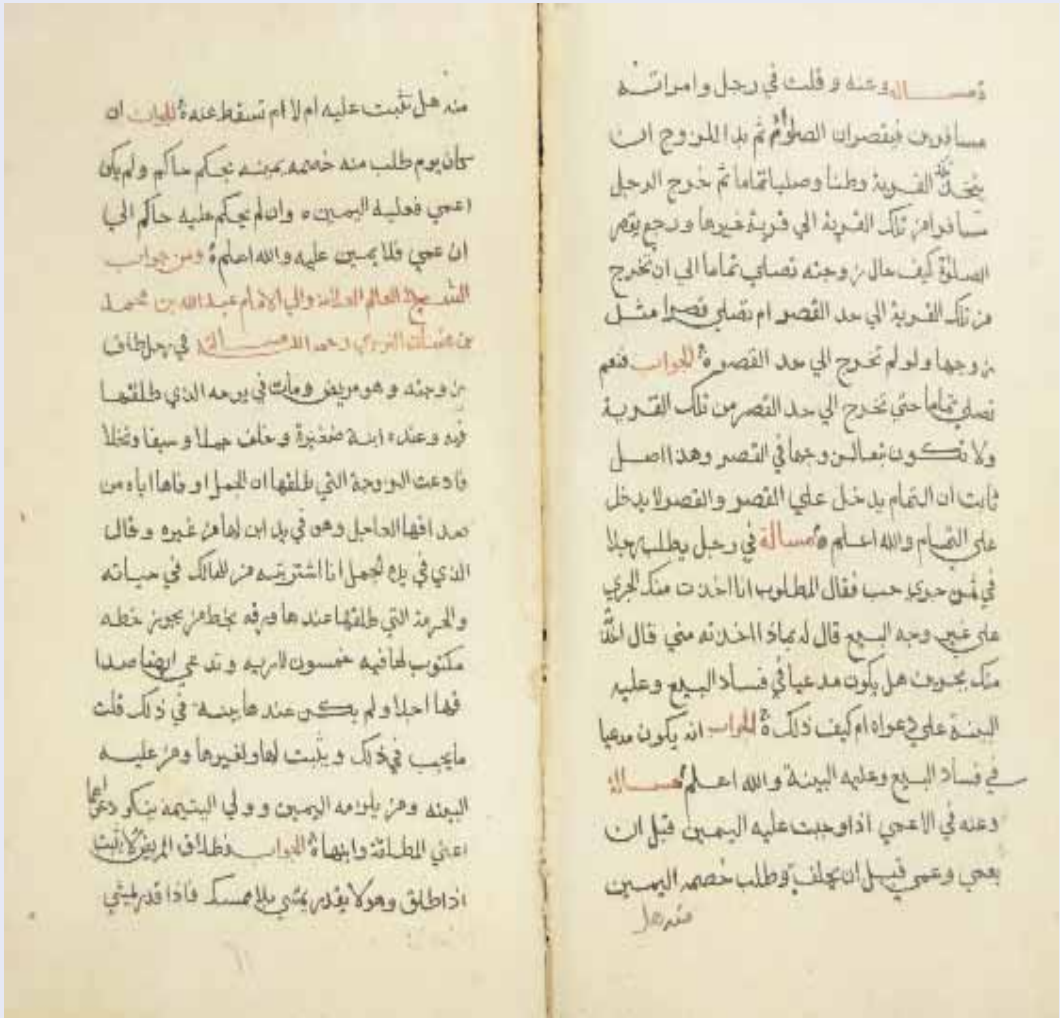 مسالة وعنه وقلت في رجل وامراته
مسافرين فيقصران الصلوة ثم بدا للزوج ان
يتخذ تلك القرية وطنا وصليا تماما ثم خرج الرجل
مسافرا من تلك القرية الي قرية غيرها ورجع يقصر
الصلوة كيف حال زوجته تصلي تماما الي ان تخرج
من تلك القرية الي حد القصر ام تصلي قصرا مثل
زوجها ولو لم تخرج الي حد القصر ه الجواب فنعم
تصلي تماما حتي تخرج الي حد القصر من تلك القرية
ولا تكون تبعا لزوجها في القصر وهذا اصل
ثابت ان التمام يدخل علي القصر والقصر لا يدخل
علي التمام والله اعلم ه مسالة في رجل يطلب رجلا
في ثمن جري حب فقال المطلوب انا اخذت منك الجري
علي غير وجه البيع قال له بماذا اخذته مني قال اخذته
منك بحرف هل يكون مدعيا في فساد البيع وعليه
البينة علي دعواه ام كيف ذلك ه الجواب انه يكون مدعيا
في فساد البيع وعليه البينة والله اعلم مسالة
وعنه في الاعمي اذا وجبت عليه اليمين قبل ان
يعمي وعمي قبل ان يحلف وطلب خصمه اليمين
منه هل
منه هل تثبت عليه ام لا ام تسقط عنه ه الجواب ان
كان يوم طلب منه خصمه يمينه بحكم حاكم ولم يكن
اعمي فعليه اليمين ه وان لم يحكم عليه حاكم الي
ان عمي فلا يمين عليه والله اعلم ه ومن جواب
الشيخ العالم العلامة والي الامام عبدالله بن محمد
بن النزوي رحمه الله مسالة في رجل طلق
زوجته وهو مريض ومات في يومه الذي طلقها
فيه وعنده ابنة صغيرة وخلف جملا وسيفا ونخلا
فادعت الزوجة التي طلقها ان الجمل اوفاها اياه من
صداقها العاجل وهو في يد ابن لها من غيره وقال
الذي في يده الجمل انا اشتريته من المالك في حياته
والحرمة التي طلقها عندها ورقة بخط من يجوز خطه
مكتوب لها فيه خمسون لارية وتدعي ايضا صدا
قها اجلا ولم يكن عندها بينة في ذلك قلت
ما يجب في ذلك ويثبت لها ولغيرها ومن عليه
البينه ومن يلزمه اليمين وولي اليتيمه ينكر دعواها
اعني المطلقة وابنها ه الجواب فطلاق المريض لا يثبت
اذا طلق وهو لا يقدر يمشي بلا ممسك فاذا قدر يمشي